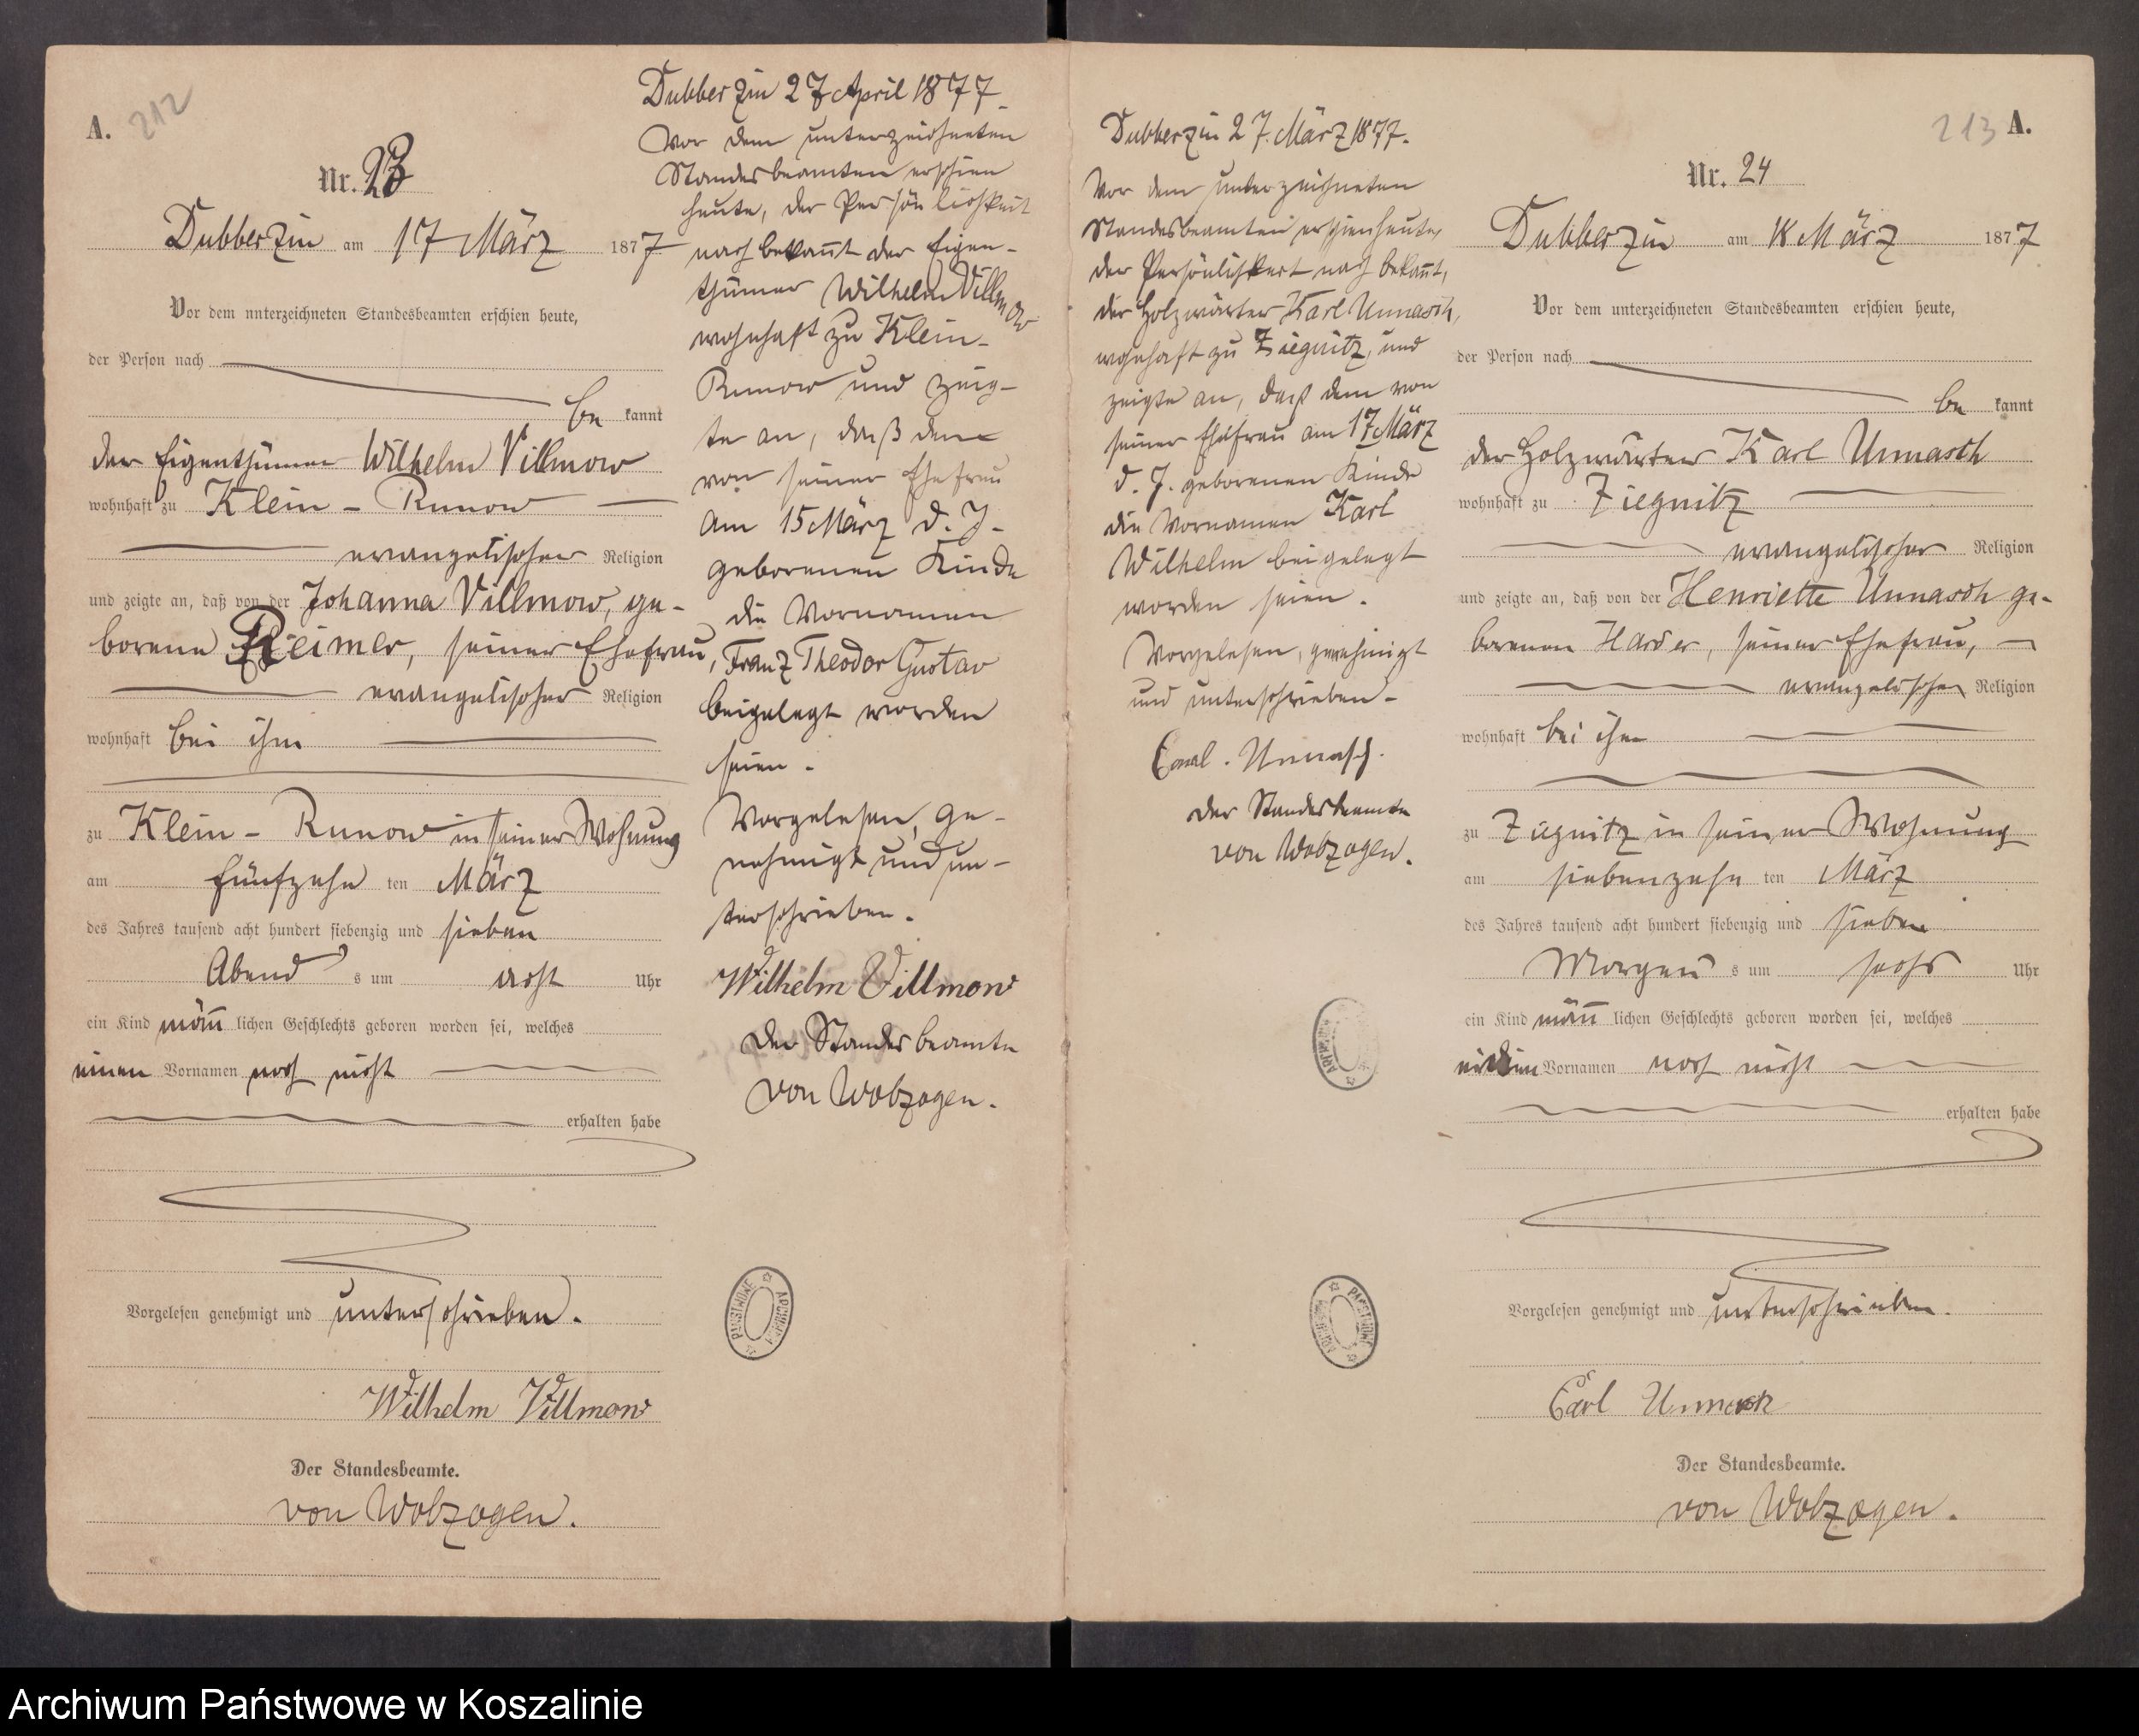 A. 212
Nr. 23
Dubberzin am 17 März 1877
Vor dem unterzeichneten Standesbeamten erschien heute,
der Person nach
be kannt
der Eigenthümer Wilhelm Villmow
wohnhaft zu Klein-Runow
evangelischer Religion
und zeigte an, daß von der Johanna Villmow, ge-
borene Reimer, seiner Ehefrau,
evangelischer Religion
wohnhaft bei ihm
zu Klein-Runow in seiner Wohnung
am fünfzehn ten März
des Jahres tausend acht hundert siebenzig und sieben
Abend s um acht Uhr
ein Kind männ lichen Geschlechts geboren worden sei, welches
einen Vornamen noch nicht
erhalten habe
Vorgelesen genehmigt und unterschrieben.
Wilhelm Villmow
Der Standesbeamte.
von Wobzogen.
Dubberzin 27 April 1877
Vor dem unterzeichneten
Standesbeamten erschien
heute, der Persönlichkeit
nach bekannt der Eigen-
thümer Wilhelm Villmow
wohnhaft zu Klein-
Runow und zeig-
te an, daß dem
von seiner Ehefrau
am 15 März d. J.
geborenen Kinde
die Vornamen
Franz Theodor Gustav
beigelegt worden
seien.
Vorgelesen, ge-
nehmigt und un-
terschrieben.
Wilhelm Villmow
Der Standesbeamte
von Wobzogen.
Dubberzin 27. März 1877.
Vor dem unterzeichneten
Standesbeamten erschien heute,
der Persönlichkeit nach bekannt,
der Holzwärter Karl Unnasch,
wohnhaft zu Ziegnitz, und
zeigte an, daß dem von
seiner Ehefrau am 17 März
d. J. geborenen Kinde
die Vornamen Karl
Wilhelm beigelegt
worden seien.
Vorgelesen, genehmigt
und unterschrieben-
Carl. Unnasch.
Der Standesbeamte
von Wobzogen.
213 A.
Nr. 24
Dubberzin am 18 März 1877
Vor dem unterzeichneten Standesbeamten erschien heute,
der Person nach
be kannt
der Holzwärter Karl Unnasch
wohnhaft zu Ziegnitz
evangelischer Religion
und zeigte an, daß von der Henriette Unnasch ge-
borenen Harder, seiner Ehefrau,
evangelischer Religion
wohnhaft bei ihm
zu Ziegnitz in seiner Wohnung
am siebenzehn ten März
des Jahres tausend acht hundert siebenzig und sieben
Morgen s um sechs Uhr
ein Kind männ lichen Geschlechts geboren worden sei, welches
Vornamen noch nicht
erhalten habe
Vorgelesen genehmigt und unterschrieben.
Carl Unnasch
Der Standesbeamte.
von Wobzogen.
ARCHIWUM PAŃSTWOWE
ARCHIWUM PAŃSTWOWE
Archiwum Państwowe w Koszalinie